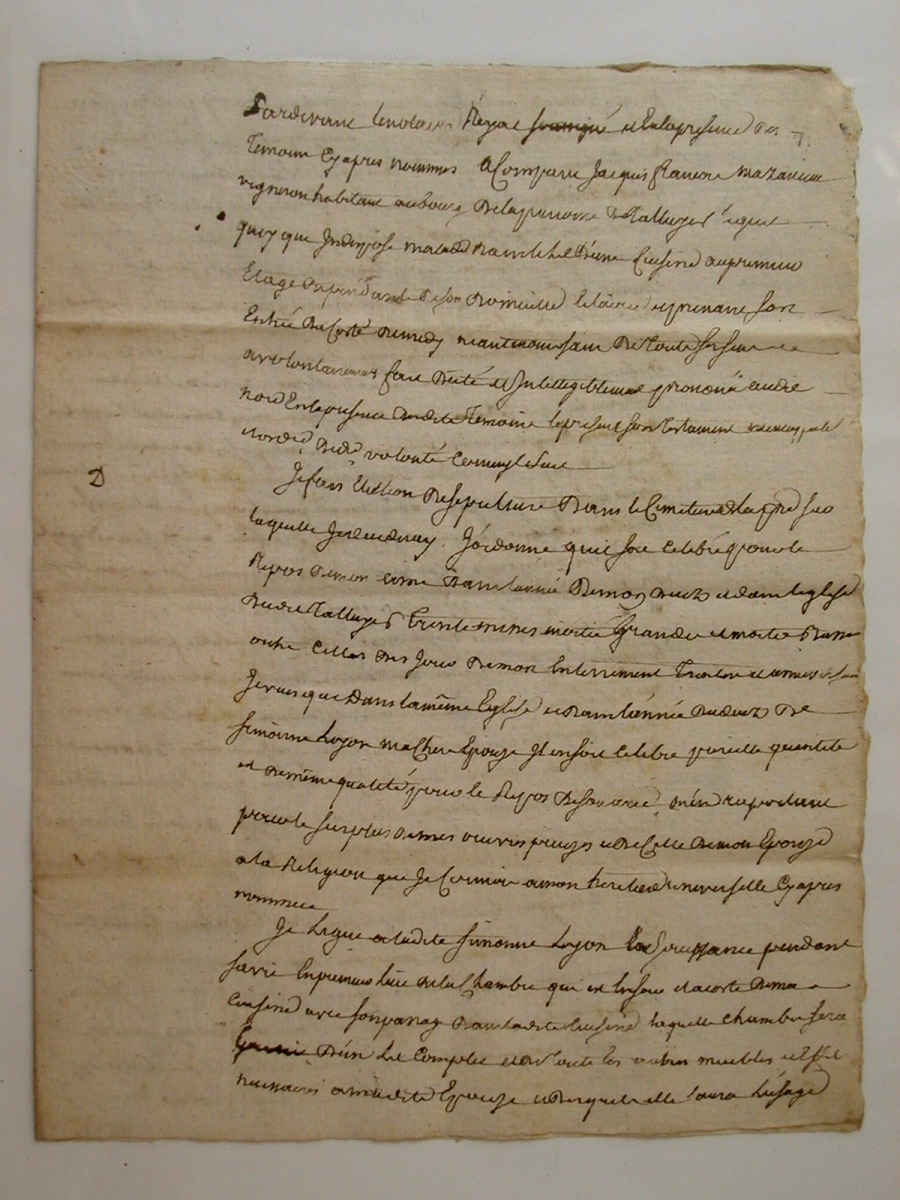 Pardevant le notaire Royal soussigné et En la presence des
Temoins Cyapres nommes a Comparu Jacques
vigneron habitant au bourg De la paroisse De Talluyers lequel
quoy que Indispose malade Dans le lit D'une Cuisine au premier
Etage Dependante De son Domicille et prenant son
Entrée Du Coté De midy neantmoins sain De tous ses sens
a volontairement fait Dicté et Intelligiblement prononcé audit
Nore En la presence Desdits Temoins le present son Testament
et ordre De Dre volonté Comme s'ensuit
D
Je fais Election De sepulture Dans le Cimetiere
laquelle Je decederay. J'ordonne qu'il soit Celebré pour le
Repos De mon ame Dans l'année De mon Deces et dans l'eglise
Dudit Talluyers Trente messes moitié Grandes et moitié Basses
outre Celles Des Jours De mon Enterrement
Je veux que Dans la même Eglise et Dans l'année Du deces De
Simonne Loyon ma Chere Epouze Il en soit Celebre pareille quantité
et De même qualité pour le Repos De son ame, m'en raportant
pour le surplus De mes œuvres pieuzes et De Celles De mon Epouze
a la Religion que Je Connois a mon heritiere universelle Cyapres
nommée
Je Legue a ladite Simonne Loyon la Jouissance pendant
sa vie En premier lieu De la Chambre qui est Ensuite et a coté De ma
Cuisine avec son passage Dans ladite Cuisine laquelle Chambre sera
Garnie D'un Lit Complet et De toute les autres meubles et effet
necessaires a madite Epouze et Desquels elle aura l'usage